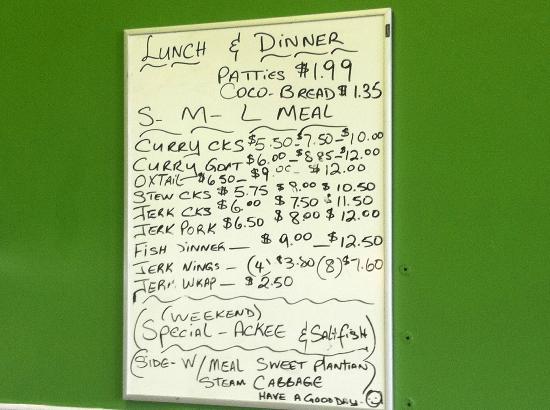 LUNCH & DINNER
PATTIES $1.99
COCO-BREAD $1.35
S- M- L MEAL
CURRY CKS $5.50-$7.50-$10.00
CURRY GOAT $6.00-$8.85-$12.00
OXTAIL-$6.50-$9.00-$12.00
STEW CKS $5.75 $8.00 $10.50
JERK CKS $6.00 $7.50 $11.50
JERK PORK $6.50 $8.00 $12.00
FISH DINNER- $9.00-$12.50
JERK NINGS-(4) $3.80 (8) $7.60
JERK WRAP-$2.50
(WEEKEND)
(SPECIAL-ACKEE & SALTFISH)
(SIDE-W/MEAL SWEET PLANTIAN
STEAM CABBAGE)
HAVE A GOOD DAY